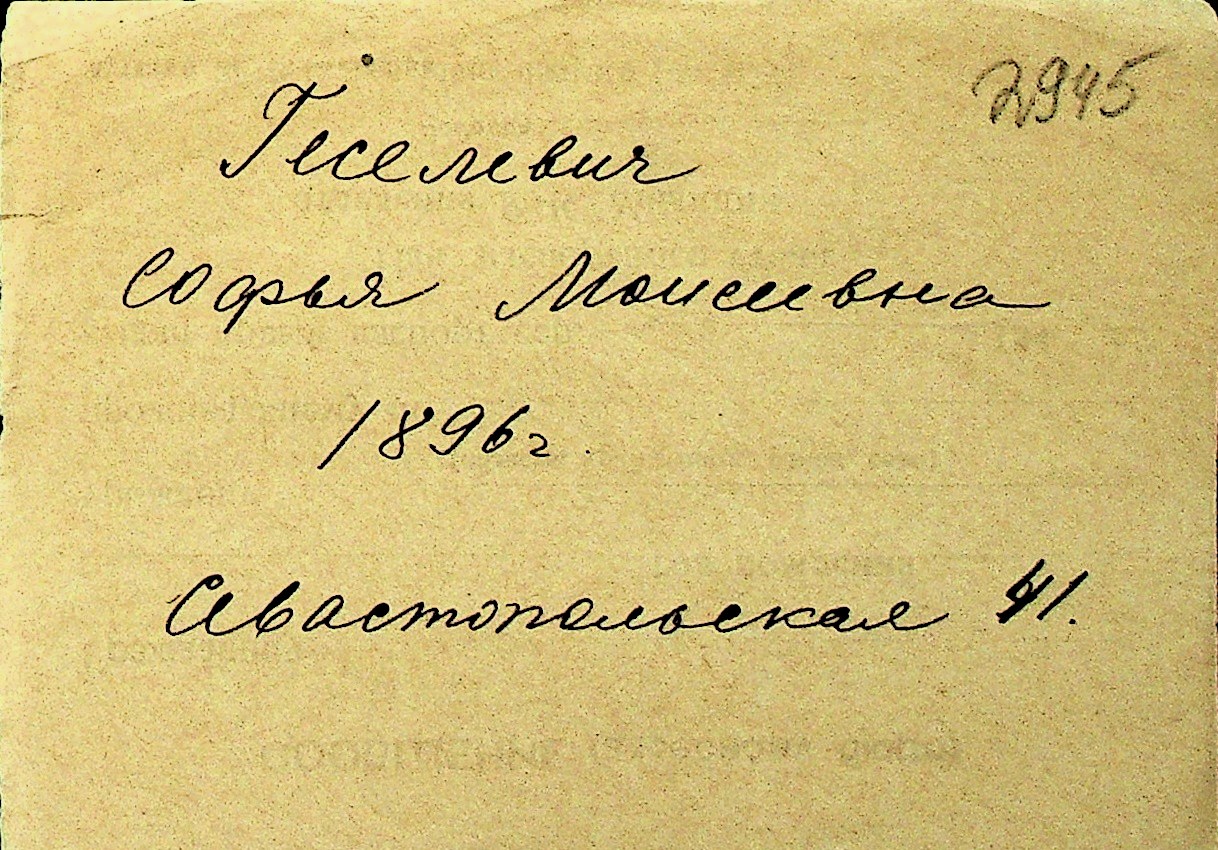 2945
Геселевич
Софья Моисеевна
1896 г.
Севастопольская 41.